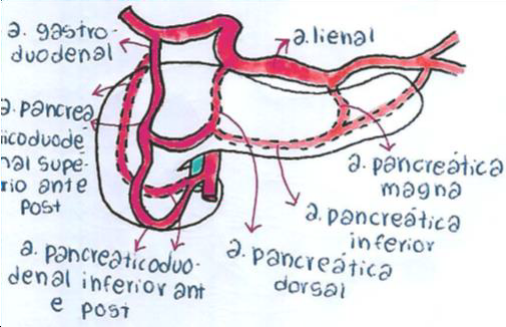 a. gastro-
duodenal
a. lienal
a. pancrea
ticoduodé
nal supé-
rio ante
post
a. pancreática
magna
a. pancreática
inferior
a. pancreática
dorsal
a. pancreaticoduo-
denal inferior ant
e post